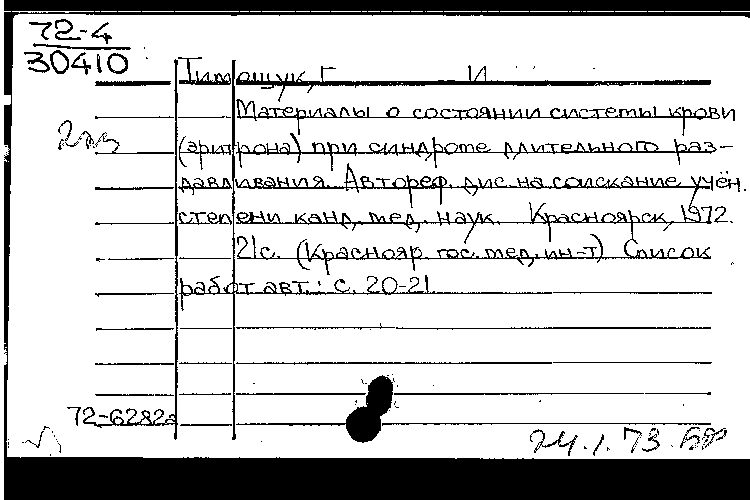 72-4
30410
Тимощук, Г И
Материалы о состоянии системы крови
2 экз
(эритрона) при синдроме длительного раз-
давливания. Автореф. дис. на соискание учён.
степени канд. мед. наук. Красноярск, 1972.
21с. (Краснояр. гос. мед. ин-т) Список
работ авт.: с. 20-21
72-6282а
24.1.73